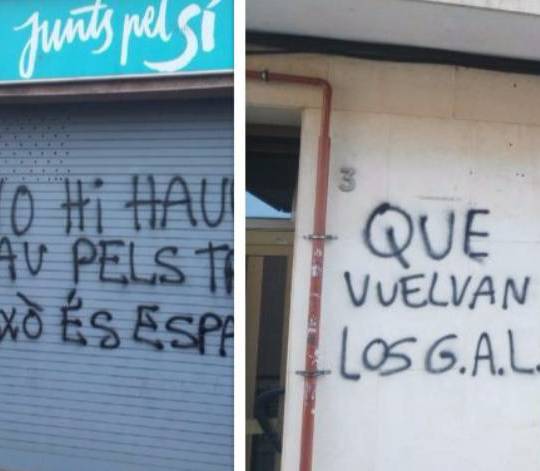 junts pel SÍ
NO Hi HAU
AU PELS TR
XÒ ÉS ESPA
3
QUE
VUELVAN
LOS G.A.L.